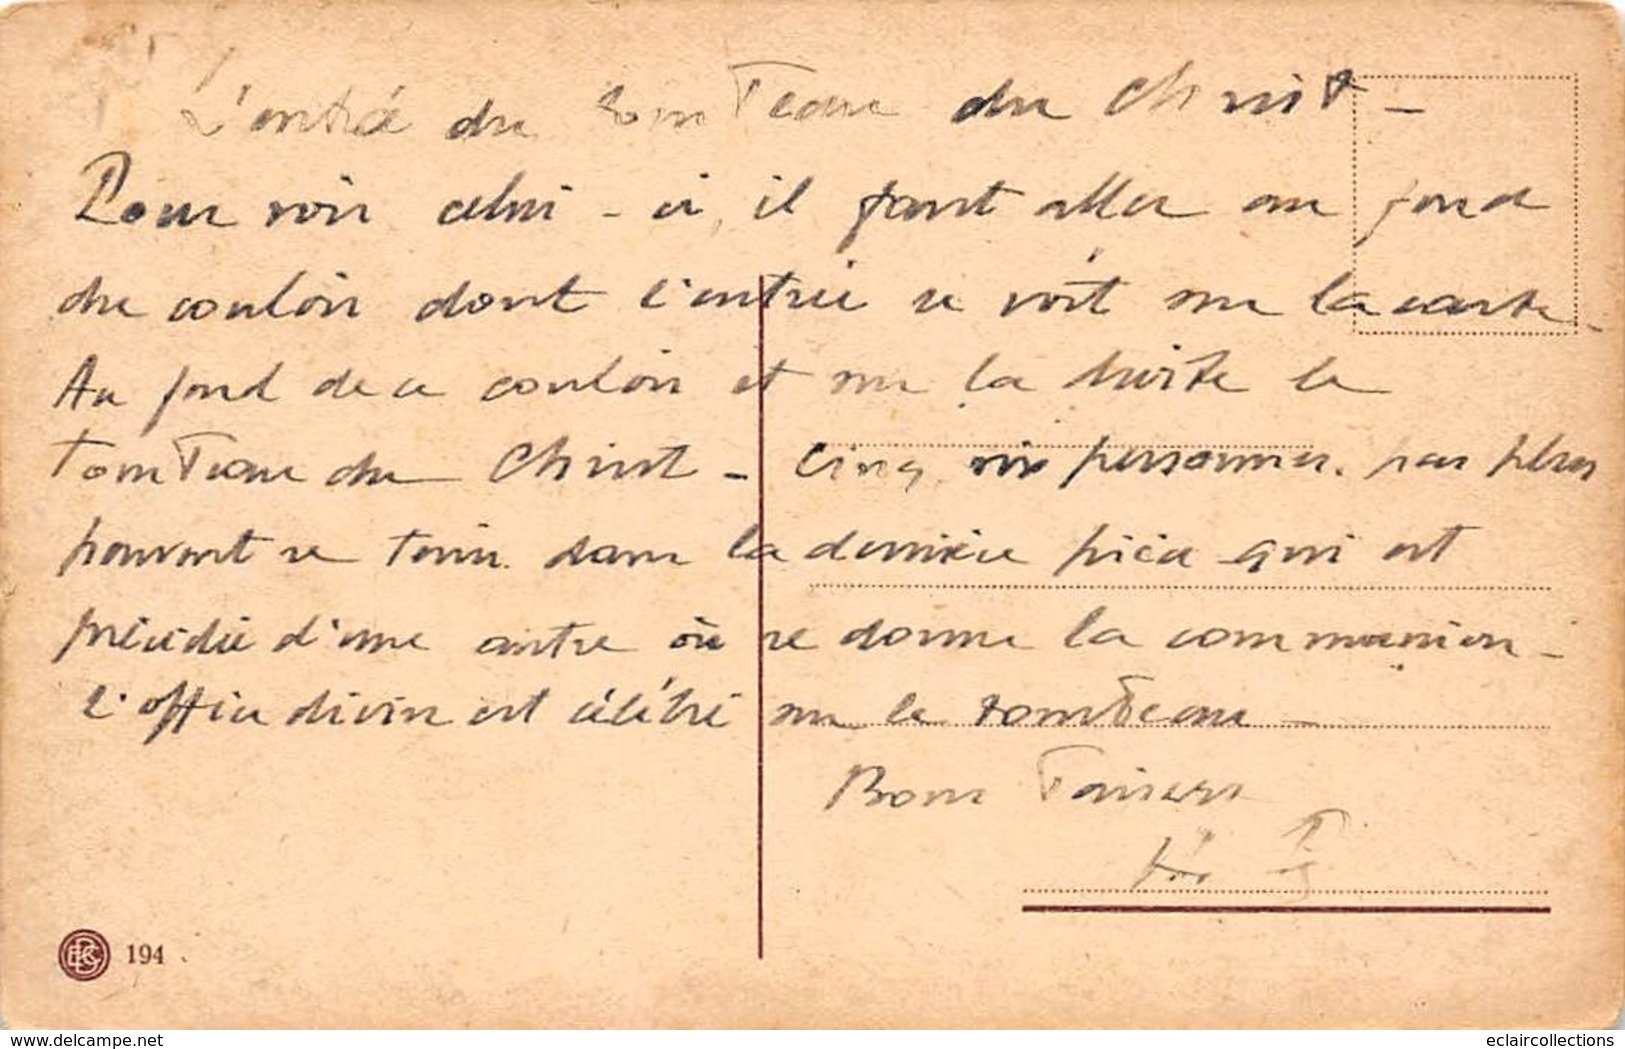 L'entrée du tombeau du Christ -
Pour voir celui-ci, il faut aller au fond
du couloir dont l'entrée se voit sur la carte.
Au fond de ce couloir et sur la droite le
tombeau du Christ - Cinq, six personnes, pas plus
peuvent se tenir dans la dernière pièce qui est
précédée d'une autre où se donne la communion -
L'office divin est célébré sur le tombeau -
Bons baisers
194
delcampe.net
eclaircollections